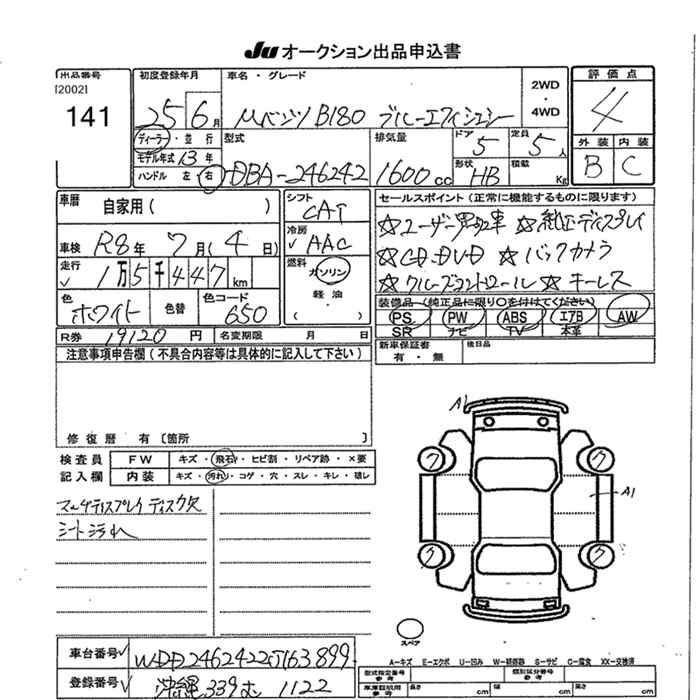 JU オークション出品申込書
出品番号
[2002]
141
初度登録年月
25年6月
ディーラー・並行
モデル年式 13年
ハンドル 左・右
車名・グレード
Mベンツ B180 ブルーエフィシェンシー
2WD
・
4WD
型式
DBA-246242
排気量
1600cc
ドア
5
定員
5人
形状
HB
積載
Kg
評価点
4
外装 内装
B C
車歴 自家用( )
車検 R8年 7月(4日)
走行 1万5千447km
色 ホワイト 色替 色コード 650
R券 19120円 名変期限 月 日
シフト
CAT
冷房
AAC
燃料
ガソリン
・
軽油
・
( )
セールスポイント(正常に機能するものに限ります)
☆ユーザー買取車 ☆純正ディスプレイ
☆CD.DVD ☆バックカメラ
☆クルーズコントロール ☆キーレス
装備品(純正品に限り○を付けてください)
PS PW ABS エアB AW
SR ナビ TV 本革
新車保証書
有・無
後日品
注意事項申告欄(不具合内容等は具体的に記入して下さい)
修復歴 有〔箇所 〕
検査員
記入欄
FW キズ・飛石・ヒビ割・リペア跡・×要
内装 キズ・汚れ・コゲ・穴・スレ・キレ・破レ
ディスプレイ ディスク欠
シート汚れ
A1
ク ク
A1
ク ク
スペア
A-キズ E-エクボ U-凹み W-補修跡 S-サビ C-腐食 XX-交換済
車台番号 WDD2462422J163899
登録番号 沖縄 339 む 1122
型式指定番号
参考
類別区分番号
参考
車庫証明用
参考
長さ cm 幅 cm 高さ cm